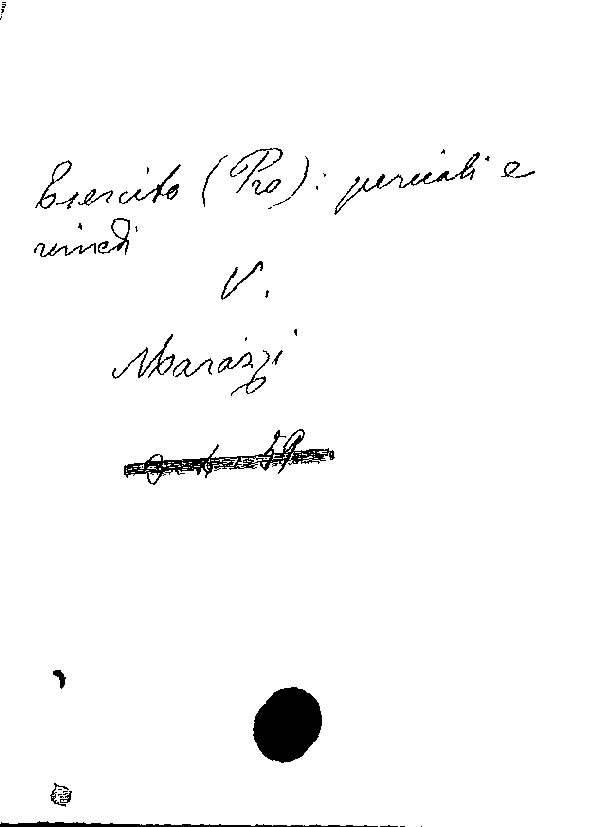 Esercito (Pro): pericoli e
rimedi
V.
Marazzi